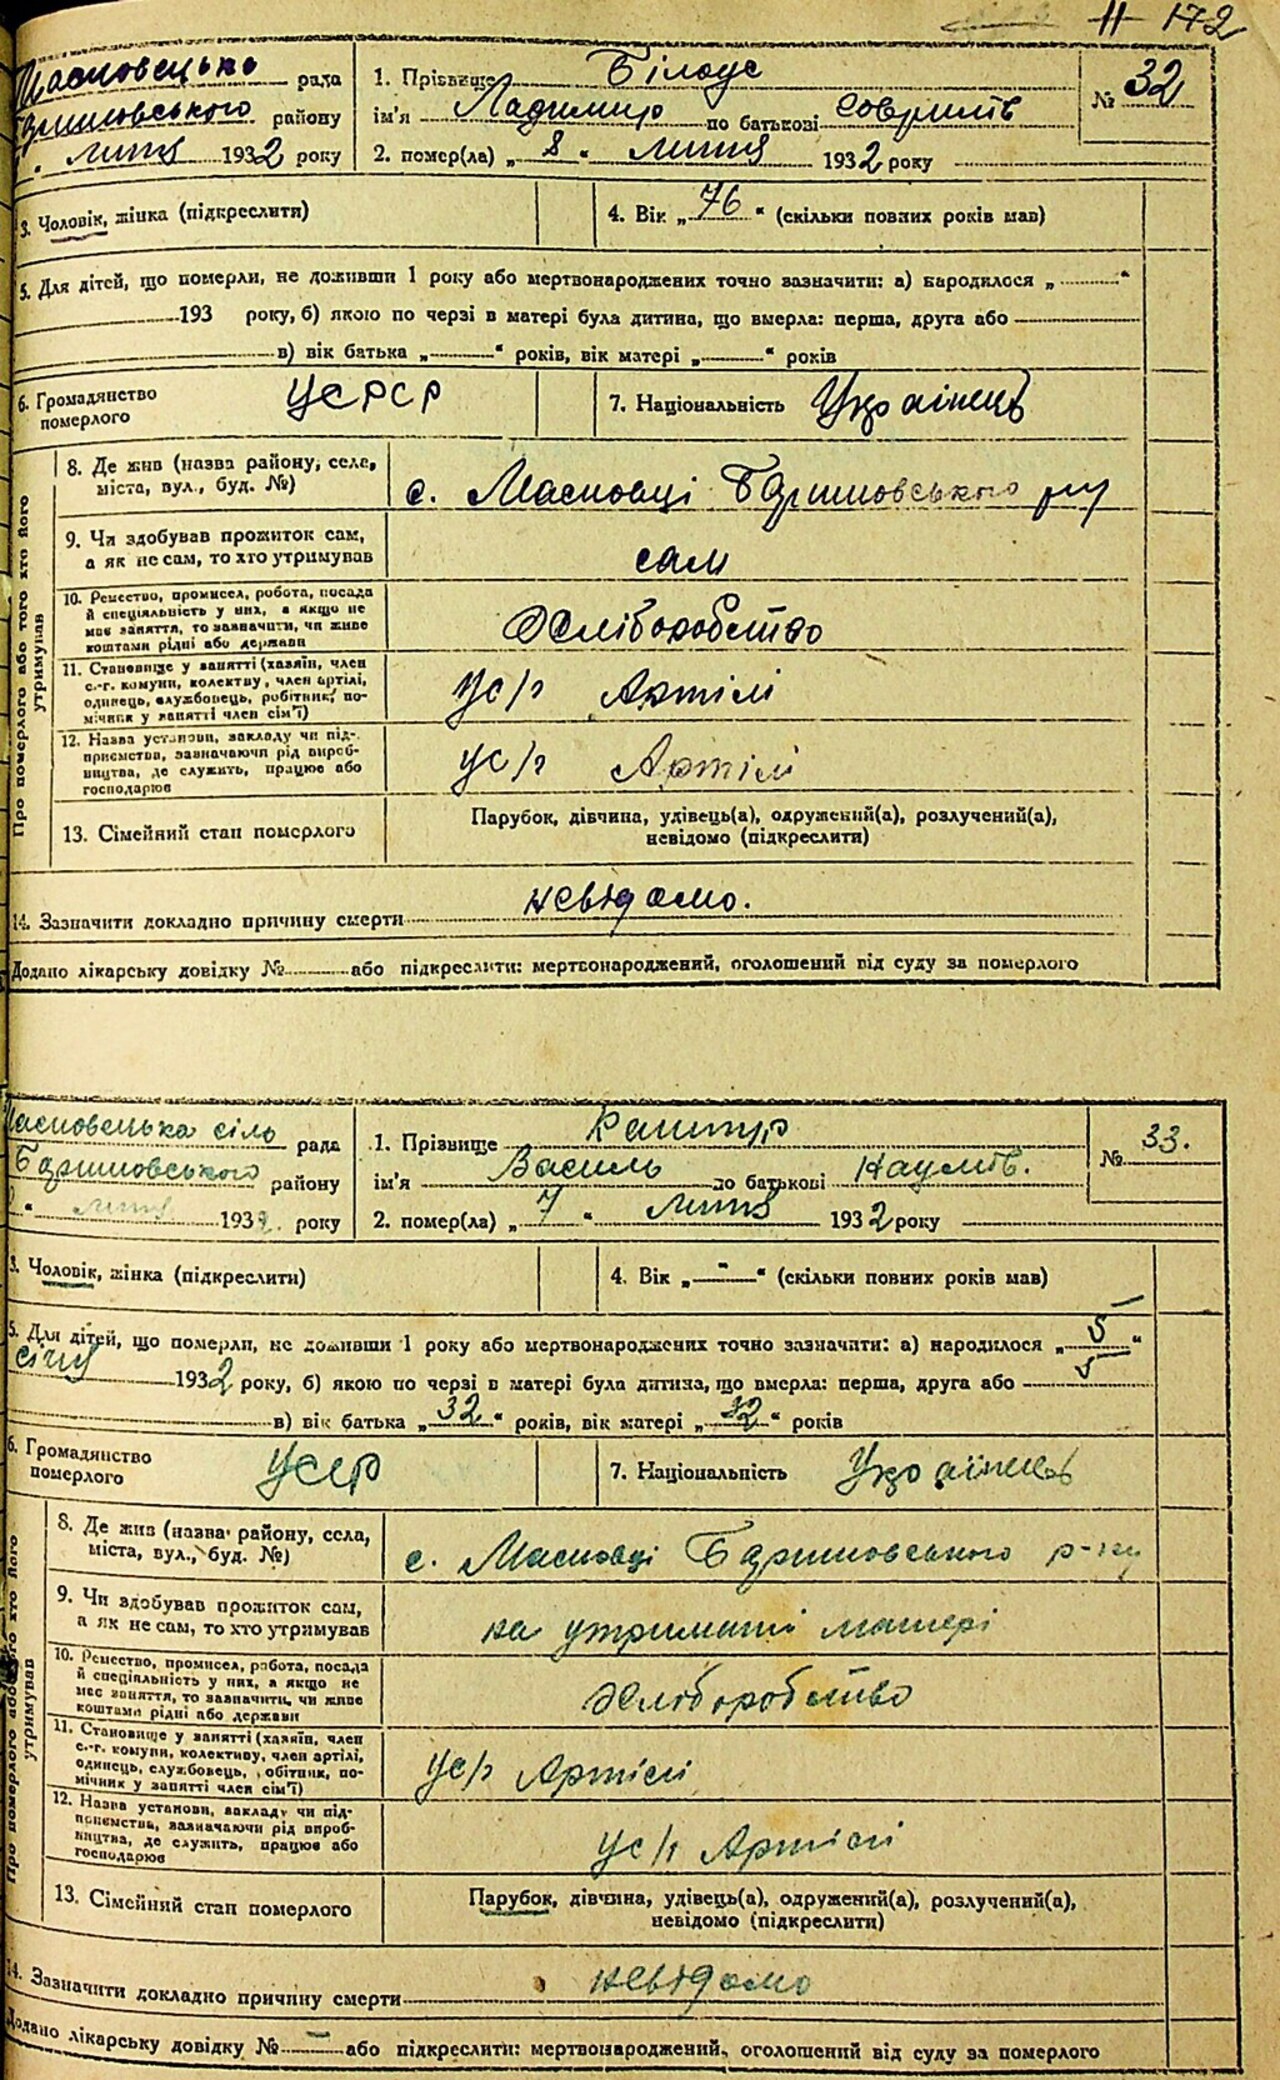 11 172
Масковецька рада
Баришовського району
" лютя 1932 року
1. Прізвище Білоус
ім'я Ладимир по батькові
2. помер(ла) „ 8 " лютя 1932 року
№ 32
3. Чоловік, жінка (підкреслити)
4. Вік „ 76 " (скільки повних років мав)
5. Для дітей, що померли, не доживши 1 року або мертвонароджених точно зазначити: а) народилося „ "
193 року, б) якою по черзі в матері була дитина, що вмерла: перша, друга або
в) вік батька „ " років, вік матері „ " років
6. Громадянство
померлого
УСРСР
7. Національність Українець
Про померлого або того хто його
утримував
8. Де жив (назва району, села,
міста, вул., буд. №)
с. Масковці Баришовського р-ну
9. Чи здобував прожиток сам,
а як не сам, то хто утримував
сам
10. Ремество, промисел, робота, посада
й спеціяльність у них, а якщо не
має заняття, то зазначити, чи живе
коштами рідні або держави
Хліборобство
11. Становище у занятті (хазяїн, член
с.-г. комуни, колективу, член артілі,
одинець, службовець, робітник, по-
мічник у занятті член сім'ї)
Ус/г Артілі
12. Назва установи, закладу чи під-
приємства, зазначаючи рід вироб-
ництва, де служить, працює або
господарює
ус/г Артілі
13. Сімейний стан померлого
Парубок, дівчина, удівець(а), одружений(а), розлучений(а),
невідомо (підкреслити)
14. Зазначити докладно причину смерти невідомо.
Додано лікарську довідку № або підкреслити: мертвонароджений, оголошений від суду за померлого
Масковецька сіль рада
Баришовського району
" лютя 1932 року
1. Прізвище
ім'я Василь по батькові Наумів.
2. помер(ла) „ 7 " лютя 1932 року
№ 33.
3. Чоловік, жінка (підкреслити)
4. Вік „ - " (скільки повних років мав)
5. Для дітей, що померли, не доживши 1 року або мертвонароджених точно зазначити: а) народилося „ 5 "
січня 1932 року, б) якою по черзі в матері була дитина, що вмерла: перша, друга або 5
в) вік батька „ 32 " років, вік матері „ 32 " років
6. Громадянство
померлого
УСРР
7. Національність Українець
Про померлого або того хто його
утримував
8. Де жив (назва району, села,
міста, вул., буд. №)
с. Масковці Баришовського р-ну
9. Чи здобував прожиток сам,
а як не сам, то хто утримував
на утриманні матері
10. Ремество, промисел, робота, посада
й спеціяльність у них, а якщо не
має заняття, то зазначити, чи живе
коштами рідні або держави
Хліборобство
11. Становище у занятті (хазяїн, член
с.-г. комуни, колективу, член артілі,
одинець, службовець, робітник, по-
мічник у занятті член сім'ї)
Ус/г Артілі
12. Назва установи, закладу чи під-
приємства, зазначаючи рід вироб-
ництва, де служить, працює або
господарює
ус/г Артілі
13. Сімейний стан померлого
Парубок, дівчина, удівець(а), одружений(а), розлучений(а),
невідомо (підкреслити)
14. Зазначити докладно причину смерти невідомо
Додано лікарську довідку № - або підкреслити: мертвонароджений, оголошений від суду за померлого